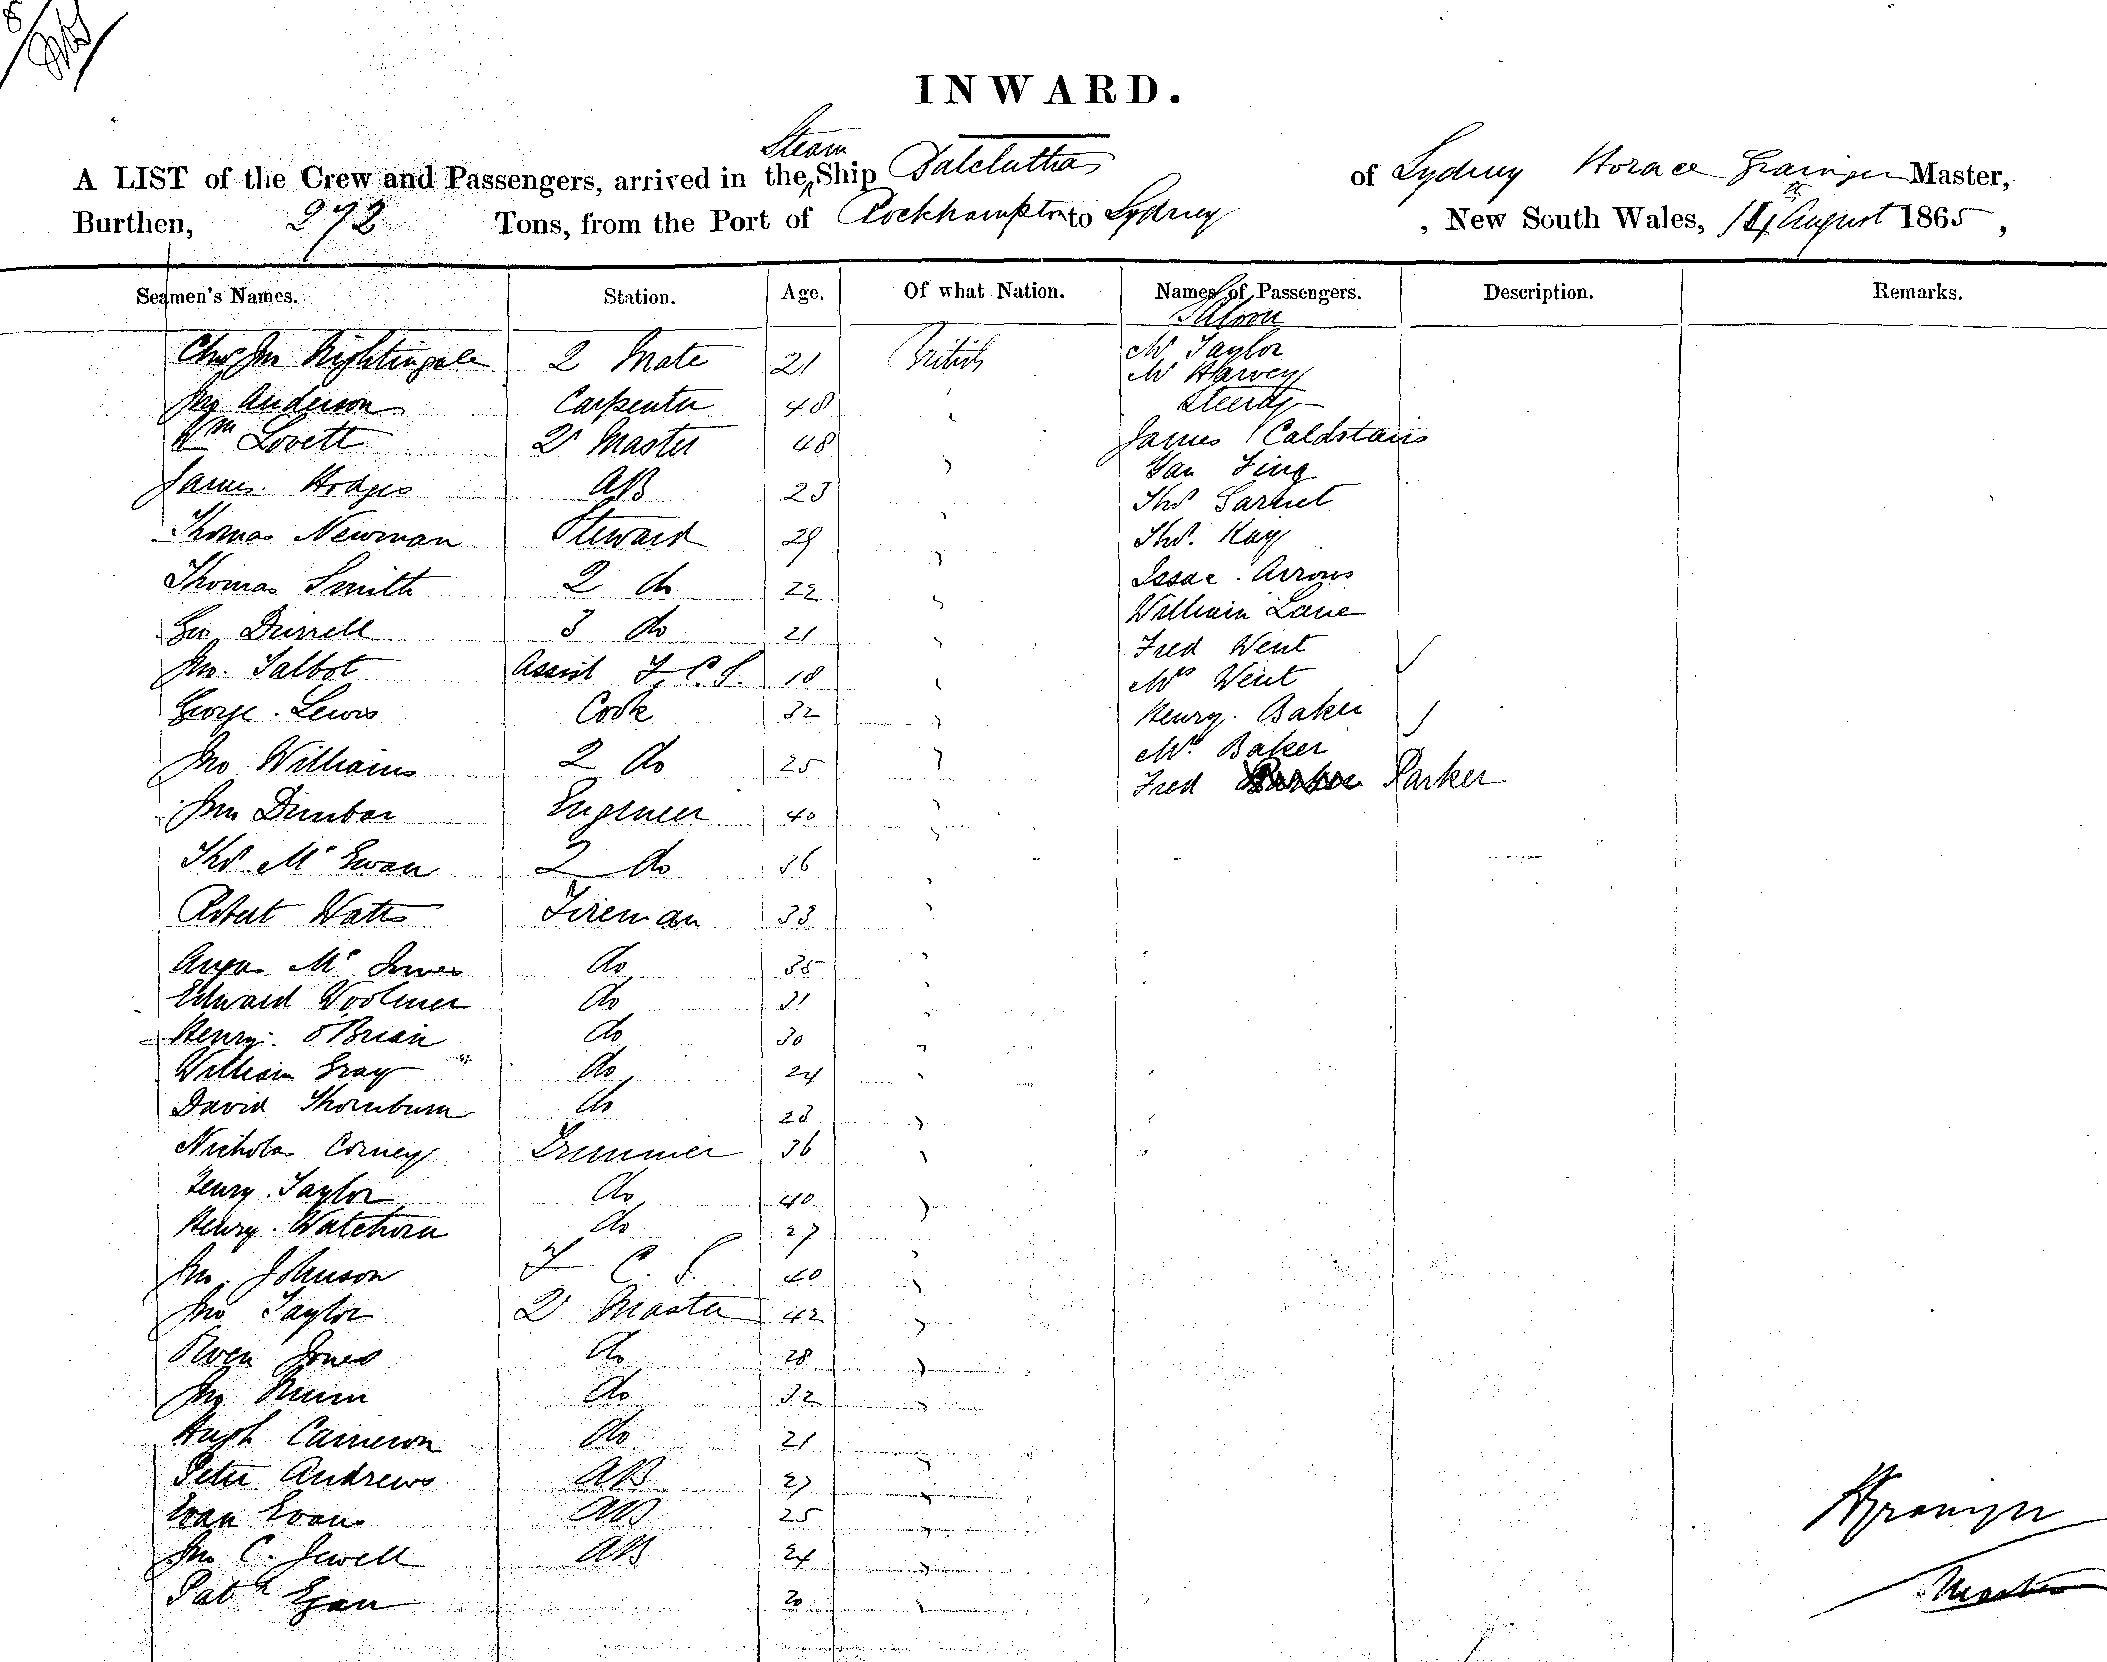 INWARD.
A LIST of the Crew and Passengers, arrived in the Steam Ship Balclutha of Sydney Horace Grainger Master,
Burthen, 272 Tons, from the Port of Rockhampton to Sydney, New South Wales, 14th August 1865,
Seamen's Names. Station. Age. Of what Nation. Names of Passengers. Description. Remarks.
Saloon
Chas Jno Nightingale 2 Mate 21 British Mr Taylor
Mr Harvey
Jno Anderson Carpenter 48 Steerage
Wm Lovett Qr Master 48 James Caldstairs
James Hodges AB 23 Fing
Thos Garnet
Thomas Newman Steward 29 Thos. Kay
Thomas Smith 2 do 22 Issac Arrows
William Lane
Geo Durrell 3 do 21 Fred Went
Jno. Talbot Assist F. C. S. 18 Mrs Went
George Lewis Cook 32 Henry Baker
Jno Williams 2 do 25 Mrs Baker
Fred Parker
Jno Dunbar Engineer 40
Thos McEwan 2 do 36
Robert Watts Fireman 33
Angus McInnes do 35
Edward Woolmer do 31
Henry O'Brian do 30
William Gray do 24
David Thornburn do 23
Nicholas Corney Trimmer 36
Henry Taylor do 40
Henry Watchorn do 27
Jno. Johnson F C. S. 40
Jno Taylor Qr Master 42
Owen Jones do 28
Jno do 32
Hugh Cameron do 21
Peter Andrews AB 27
Evan Evans AB 25
Jno C. Jewell AB 24
Patk Egan 20
H Grainger
Master